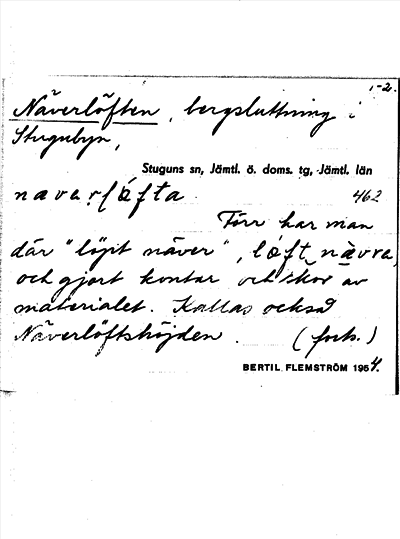 1-2.
Näverlöften, bergsluttning i
Stugubyn,
Stuguns sn, Jämtl. ö. doms. tg, Jämtl. län
462
Förr har man
där "löpt näver", nävra,
och gjort kontar och skor av
materialet. Kallas också
Näverlöftshöjden. (forts.)
BERTIL FLEMSTRÖM 1954.